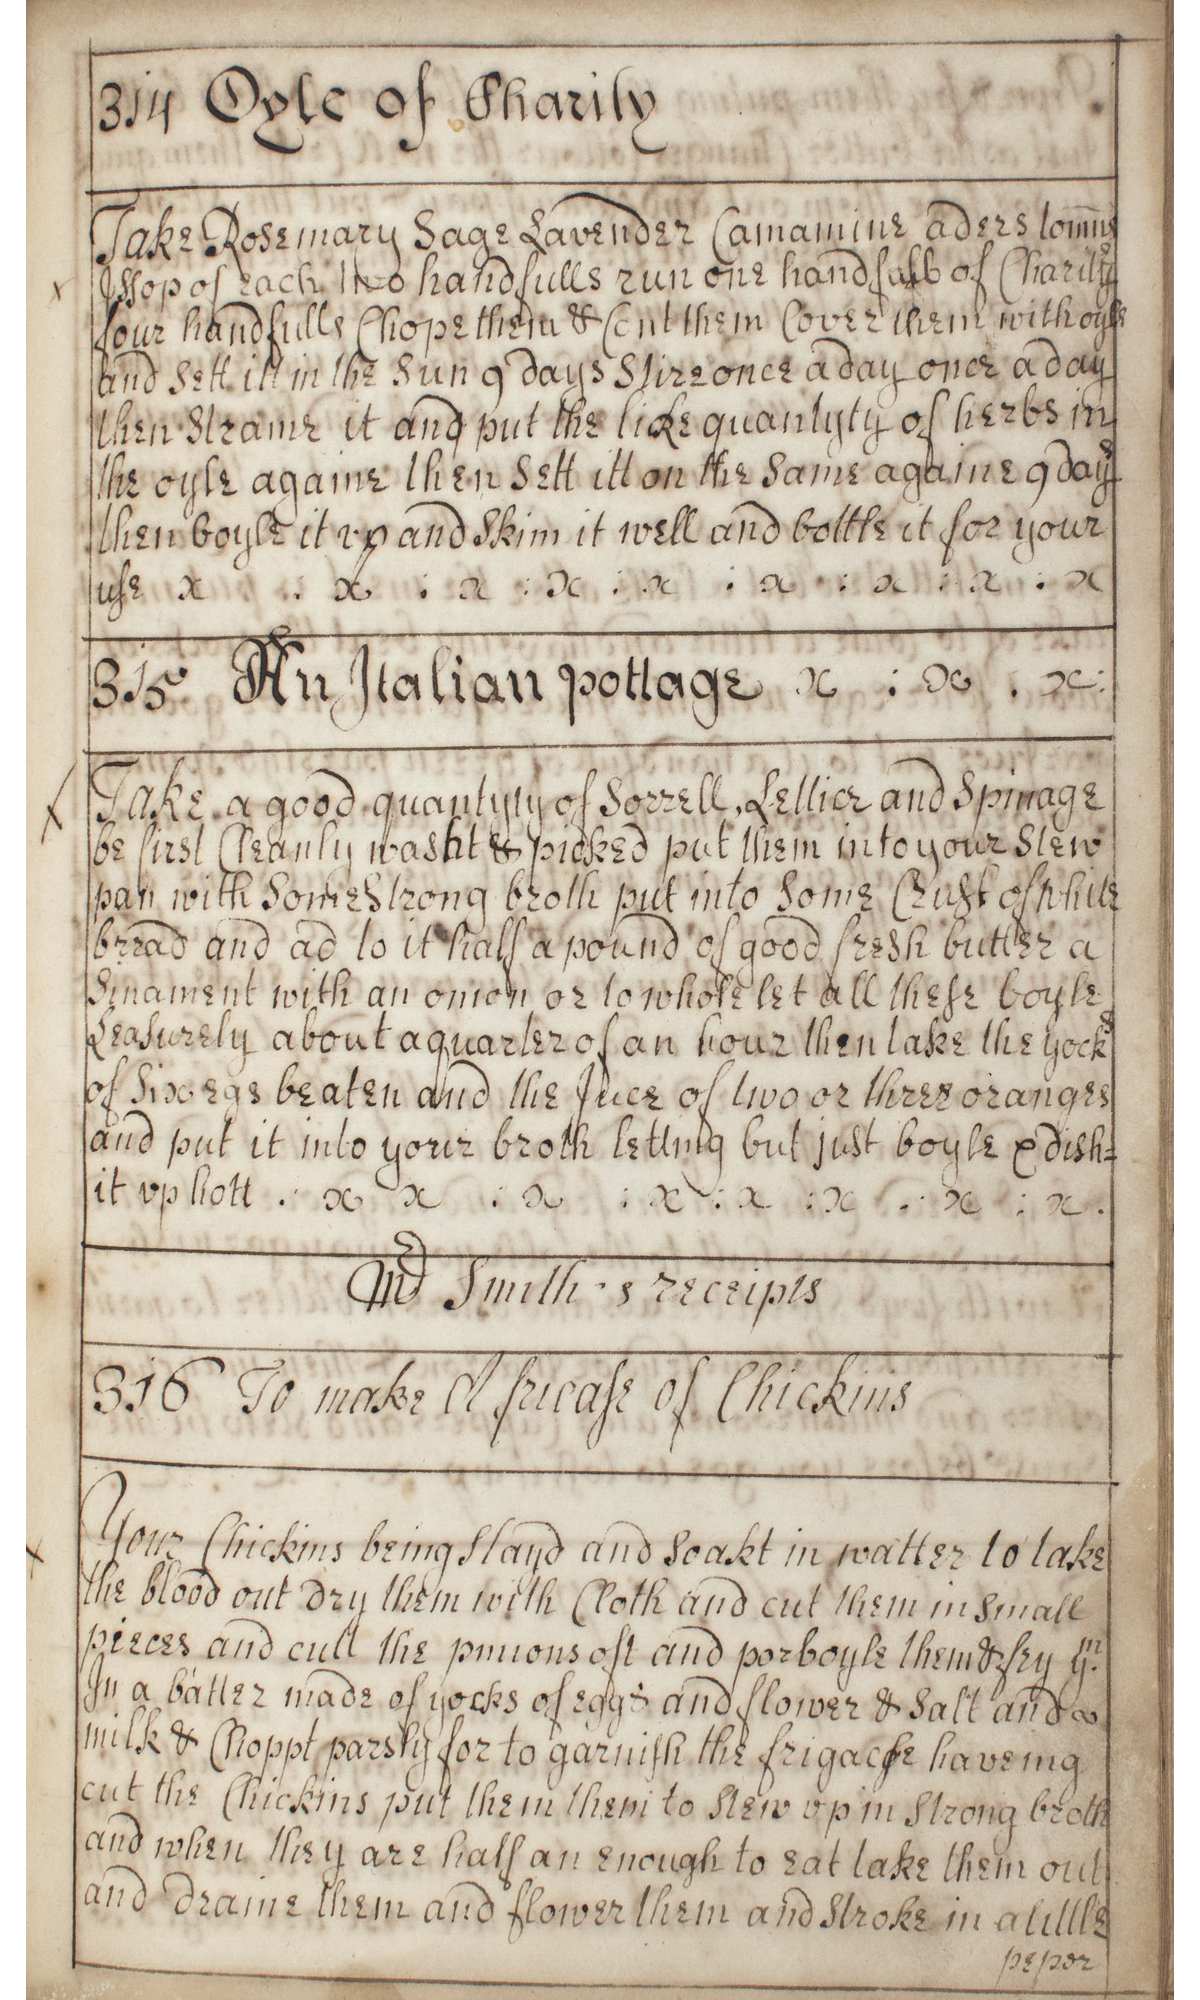 314 Oyle of Charity
Take Rosemary Sage Lavender Camamine aders
Issop of each two handfulls run one handfull of Charity
four handfulls Chope them & Cent them Cover them with oyle
and Sett itt in the Sun 9 days Stire once a day once a day
then Straine it and put the like quantyty of herbs in
the oyle againe then Sett itt on the Same againe 9 days
then boyle it vp and Skim it well and bottle it for your
use x : x : x : x : x : x : x : x : x
315 An Italian pottage x : x . x :
Take a good quantyty of Sorrell, Lettice and Spinage
be first Cleanly washt & picked put them into your Stew
pan with Some Strong broth put into Some Crust of white
bread and ad to it half a pound of good fresh butter a
Sinament with an onion or to whole let all these boyle
Leasurely about a quarter of an hour then take the yocks
of Six egs beaten and the Juce of two or three oranges
and put it into your broth letting but just boyle & dish=
it vp hott . : x x : x : x : x : x . x : x .
Smith·s receipts
316 To make A fricase of Chickins
Your Chickins being flayd and Soakt in watter to take
the blood out dry them with Cloth and cut them in Small
pieces and cutt the pinions oft and porboyle them & fry ym.
In a batter made of yocks of eggs and flower & Salt and
milk & Choppt parsly for to garnish the frigacse haveing
cut the Chickins put them them to Stew vp in Strong broth
and when they are half an enough to eat take them out
and draine them and flower them and Stroke in a little
peper